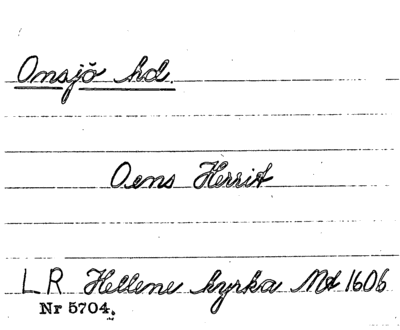 Onsjö hd.
Oens Herrit
LR Hellene kyrka Md 1606
Nr 5704.